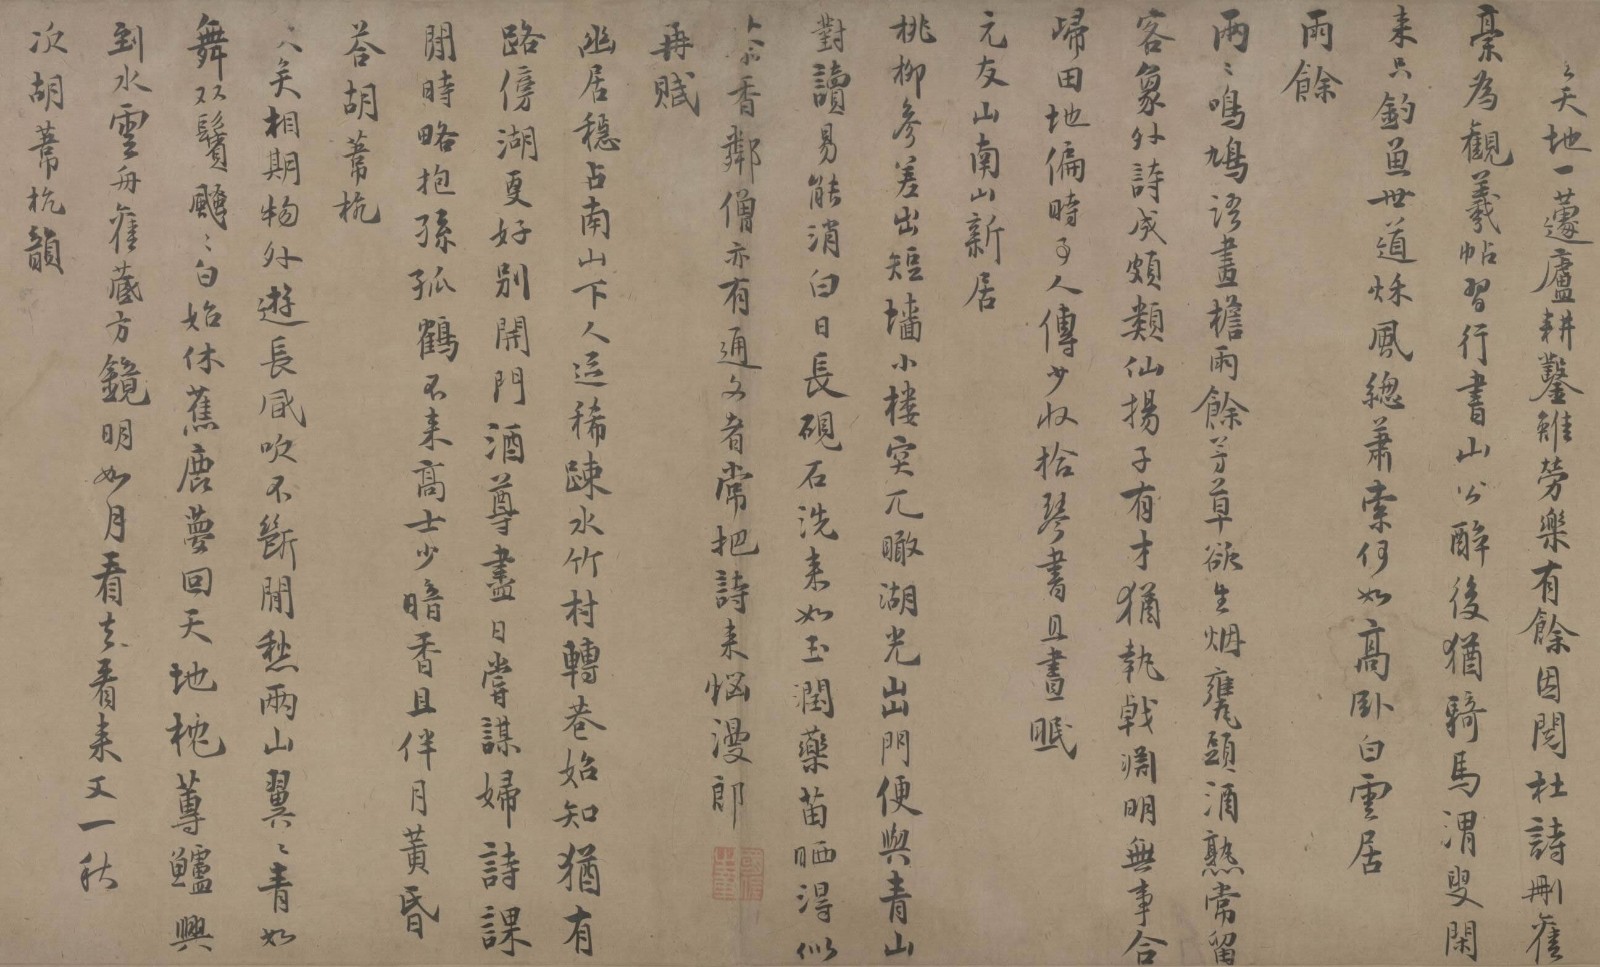 天地一蘧廬耕鑿雖勞樂有餘因閱杜詩刪舊
稾為觀羲帖習行書山公醉後猶騎馬渭叟閑
来只釣魚世道秋風總蕭索何如高卧白雲居
雨餘
雨〻鳴鳩語畫檐雨餘芳草欲生烟甕頭酒熟常留
客象外詩成頗類仙揚子有才猶執戟淵明無事合
歸田地偏時事人傳少收拾琴書且晝眠
元友山南山新居
桃柳參差出短墻小樓突兀瞰湖光出門便與青山
對讀易能消白日長硯石洗来如玉潤藥苗晒得似
香鄰僧亦有通文者常把詩来惱漫郎
再賦
幽居穩占南山下人迹稀疎水竹村轉巷始知猶有
路傍湖更好別開門酒尊盡日嘗謀婦詩課
閒時略抱孫孤鶴不来高士少暗香且伴月黄昏
荅胡葦杭
久矣相期物外遊長風吹不斷閒愁兩山翼〻青如
舞双鬢飄〻白始休蕉鹿夢回天地枕蓴鱸興
到水雲舟舊蔵方鏡明如月看去看来又一秋
次胡葦杭韻